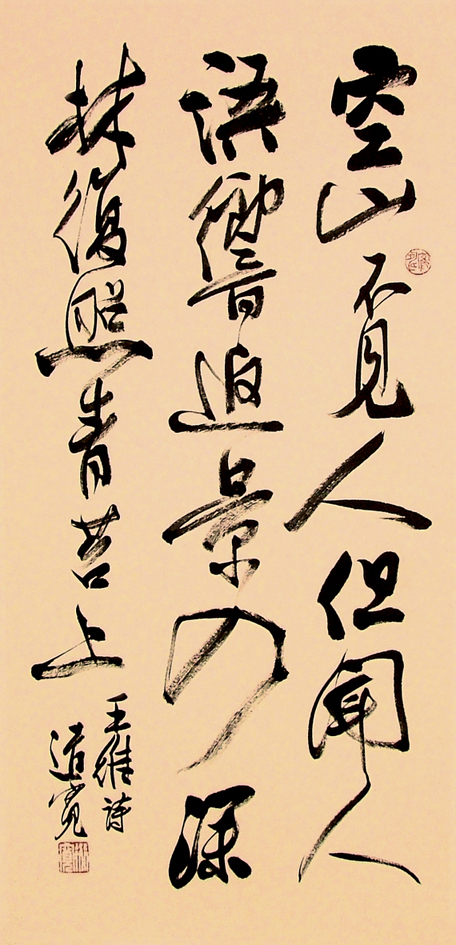 空山不見人但聞人
語響返景入深
林復照青苔上
王維詩
道寬